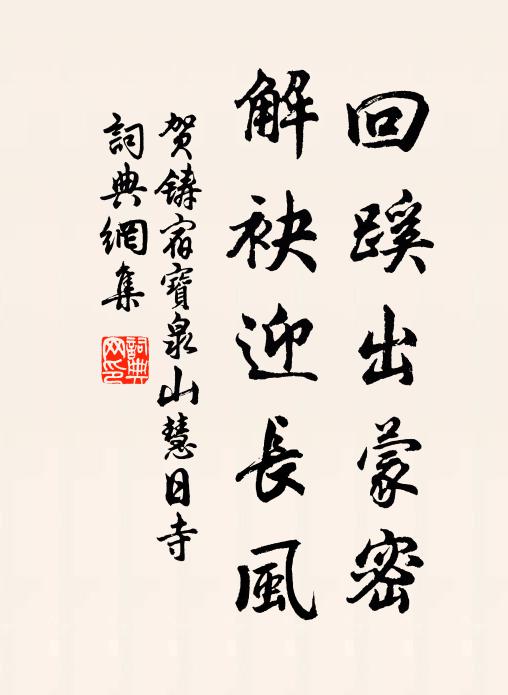 回蹊出蒙密
解袂迎長風
贺鑄宿寶泉山慧日寺
詞典網集
詞典
网印